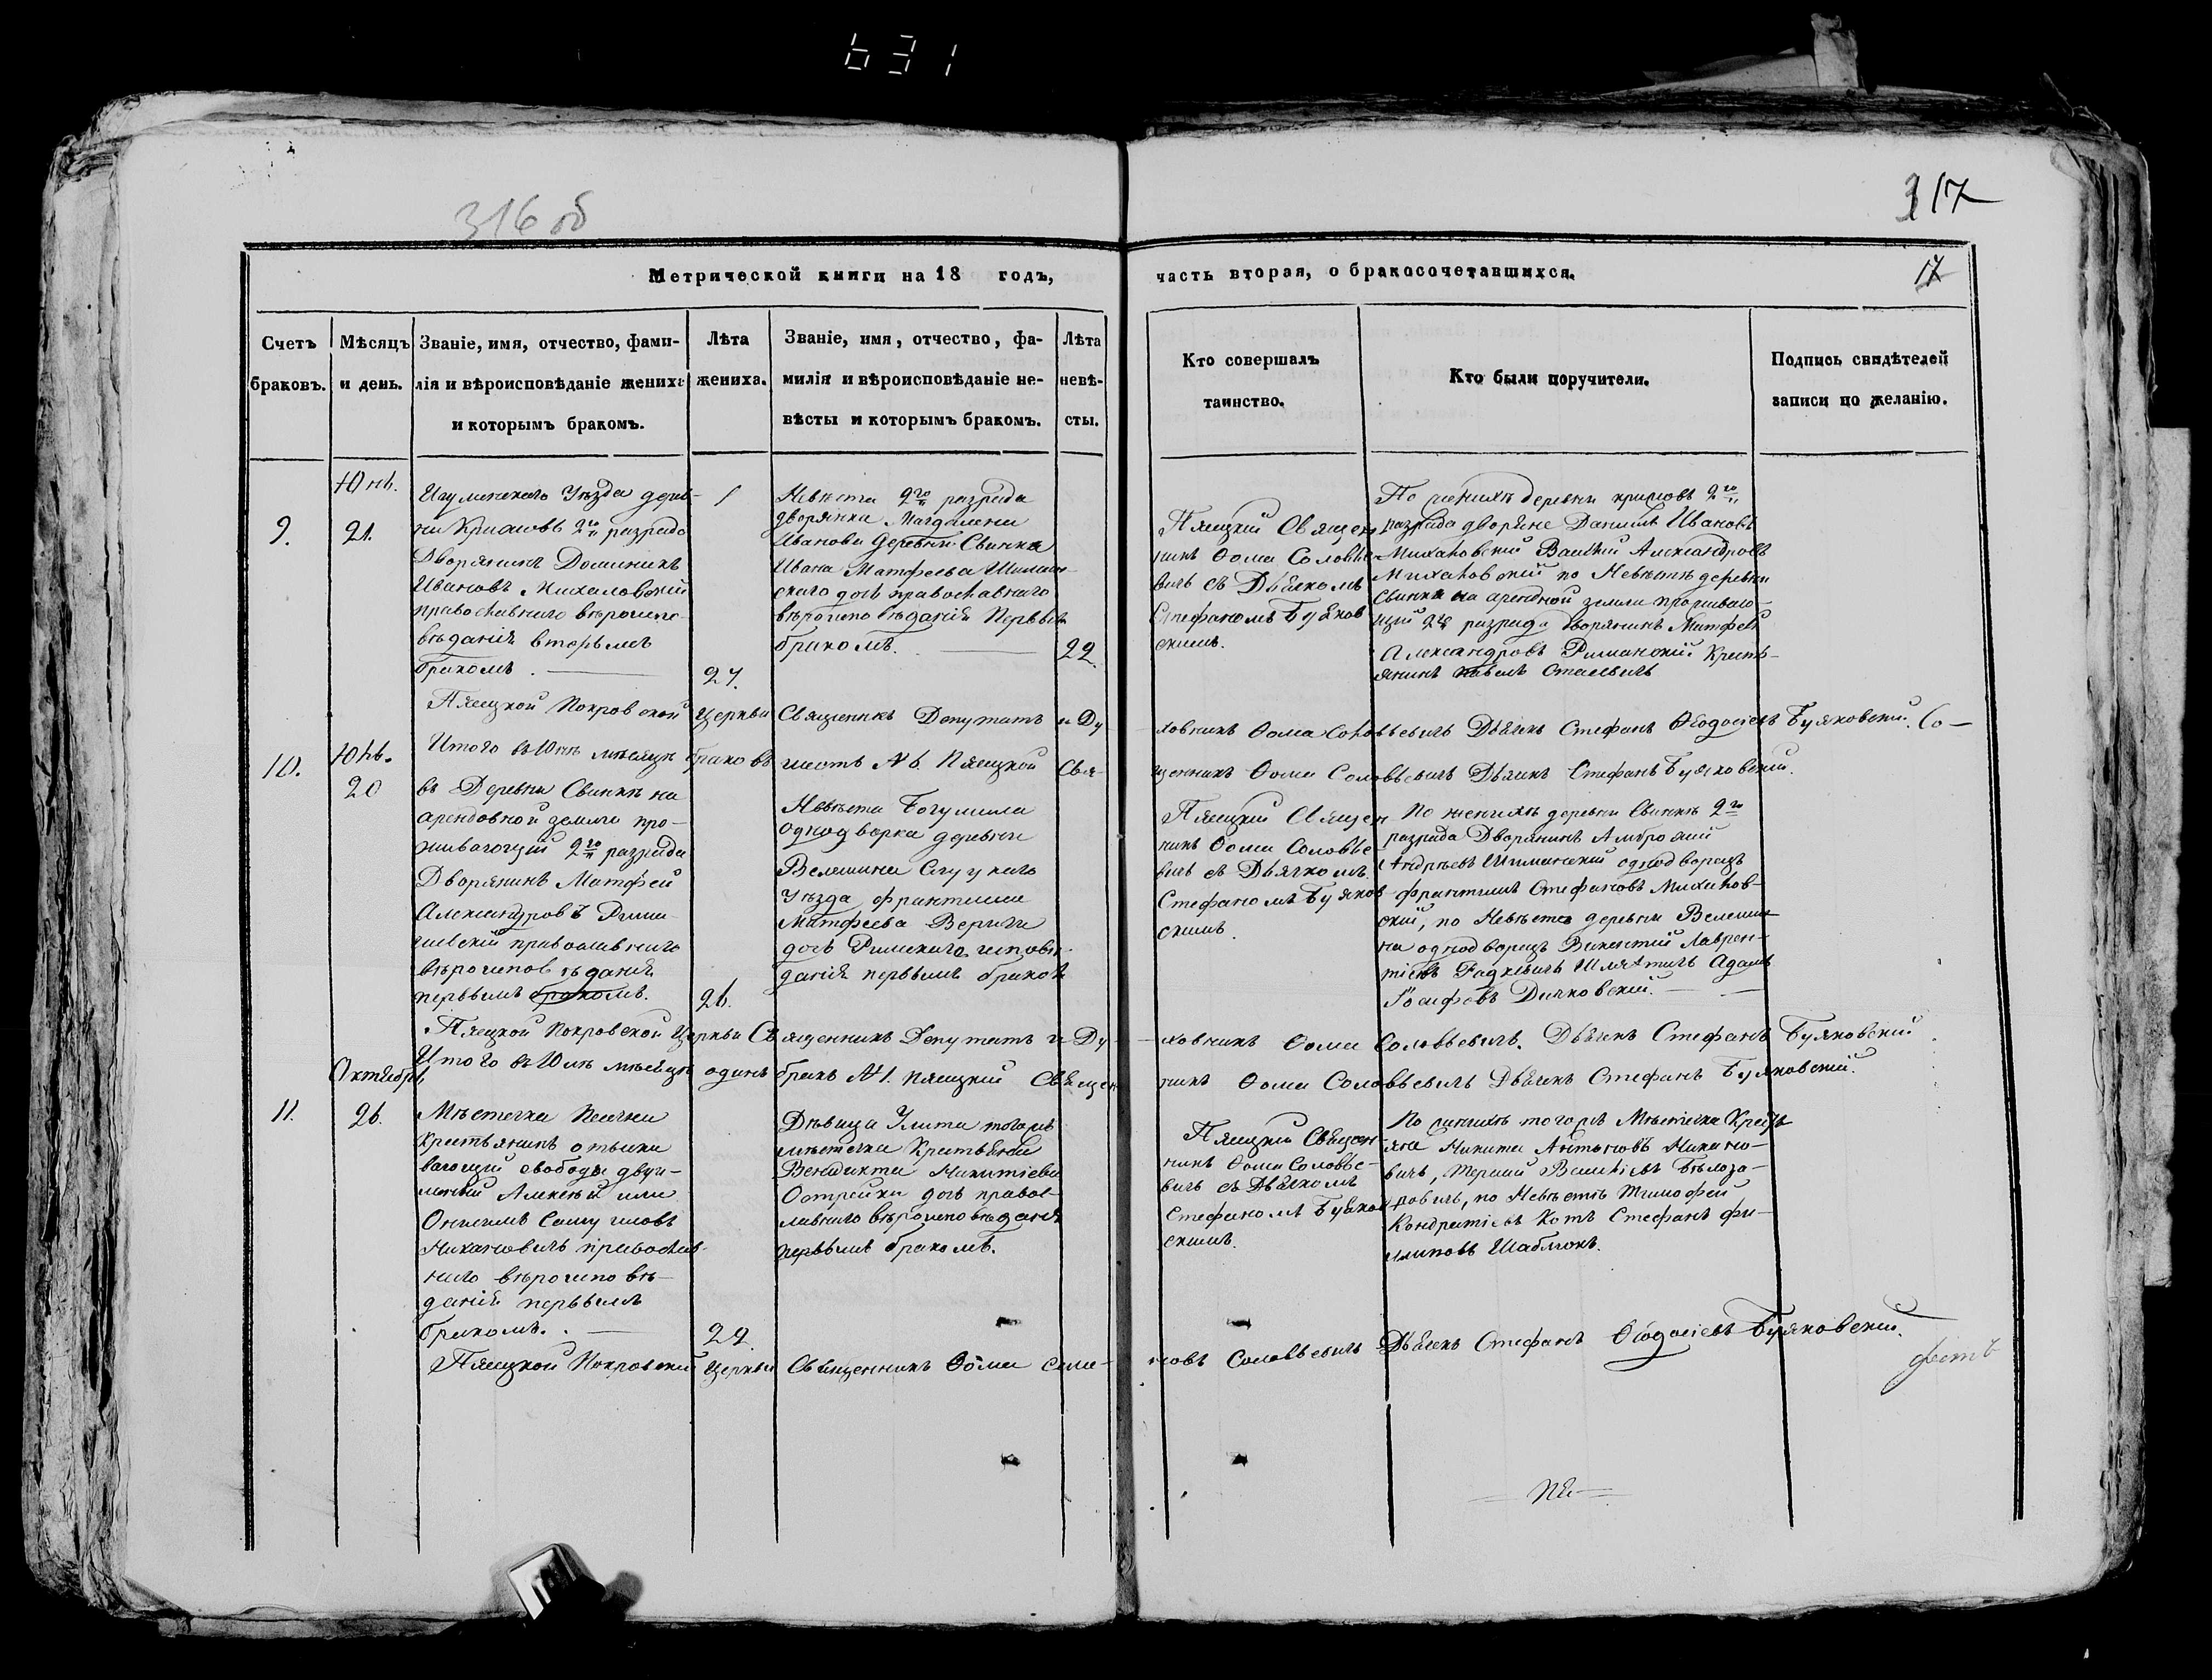 631
316 об
317
17
Метрической книги на 18 годъ,
часть вторая, о бракосочетавшихся.
Счетъ браковъ.
Мѣсяцъ и день.
Званіе, имя, отчество, фами-
лія и вѣроисповѣданіе жениха
и которымъ бракомъ.
Лѣта жениха.
Званіе, имя, отчество, фа-
милія и вѣроисповѣданіе не-
вѣсты и которымъ бракомъ.
Лѣта невѣ-
сты.
Кто совершалъ
таинство.
Кто были поручители.
Подпись свидѣтелей
записи по желанію.
9.
Юнь.
21.
Игуменскаго Уѣзда дерев-
ни 2го разряда
Дворянинъ Доминикъ
Ивановъ Михаловскій
православнаго вѣроиспо-
вѣданія вторымъ
бракомъ.
27.
Невѣста 2го разряда
дворянка Магдалена
Иванова деревни Свинка
Ивана Матфеева Шиман-
скаго дочь православнаго
вѣроисповѣданія первымъ
бракомъ.
22.
Пясецкій Священ
никъ Ѳома Соловье
вичъ съ Дьячкомъ
Стефаномъ Буяков
скимъ.
По женихѣ деревни 2го
разряда дворяне Даніилъ Ивановъ
Михаловскій Василій Александровъ
Михаловскій по Невѣстѣ деревни
Свинка на арендной земли проживаю-
щій 2го разряда дворянинъ Матфей
Александровъ Крестья-
янинъ Стасевичъ
Пясецкой Покровской церкви Священникъ Депутатъ и Ду
ховникъ Ѳома Соловьевичъ Дьячекъ Стефанъ Ѳеодосіевъ Буяковскій. Со-
Итого въ Юнѣ мѣсяцѣ браковъ шесть № 6. Пясецкой Свя-
щенникъ Ѳома Соловьевичъ Дьячекъ Стефанъ Буяковскій.
10.
Юль.
20
въ Деревни Свинкѣ на
арендовной земли про-
живающій 2го разряда
Дворянинъ Матфей
Александровъ
православнаго
вѣроисповѣданія
первымъ бракомъ.
26.
Невѣста Богумила
однодворка деревни
Велешина Слуцкаго
Уѣзда Франтишка
Матфеева Вериги
дочь Римскаго исповѣ-
данія первымъ бракомъ
Пясецкій Священ
никъ Ѳома Соловье
вичъ съ Дьячкомъ
Стефаномъ Буяков
скимъ.
По женихѣ деревни Свинкѣ 2го
разряда Дворянинъ Амброжій
Андреевъ Шиманскій однодворецъ
Франтишъ Стефановъ Михалов-
скій, по Невѣстѣ деревни Велеши-
на однодворецъ Викентій Лаврен-
тіевъ Радкевичъ Шляхтичъ Адамъ
Іосифовъ Дичковскій.
Пясецкой Покровской Церкви Священникъ Депутатъ и Ду-
ховникъ Ѳома Соловьевичъ. Дьячекъ Стефанъ Буяковскій
Итого въ Юлѣ мѣсяцѣ одинъ бракъ № 1. Пясецкій Священ
никъ Ѳома Соловьевичъ Дьячекъ Стефанъ Буяковскій.
11.
Октябрь
26.
Мѣстечка Песечна
Крестьянинъ отыски
вающій свободы двуи-
мянный Алексѣй или
Онисимъ Самуиловъ
Никановичъ православ-
наго вѣроисповѣ-
данія первымъ
бракомъ.
22.
Дѣвица Улита тогожъ
мѣстечка Крестьяни
Венидикта Никитіева
Острейки дочь правос-
лавнаго вѣроисповѣданія
первымъ бракомъ.
Пясецкій Священ-
никъ Ѳома Соловье-
вичъ съ Дьячкомъ
Стефаномъ Буяков
скимъ.
По женихѣ тогожъ Мѣстечка Кресть
яне Никита Антоновъ Никано-
вичъ, Терший Василіевъ Бѣлоза-
ровичъ, по Невѣстѣ Тимофей
Кондратіевъ Котъ Стефанъ Фи-
липовъ Шаблюкъ.
Пясецкой Покровской Церкви Священникъ Ѳома Симе-
новъ Соловьевичъ Дьячекъ Стефанъ Ѳеодосіевъ Буяковскій.